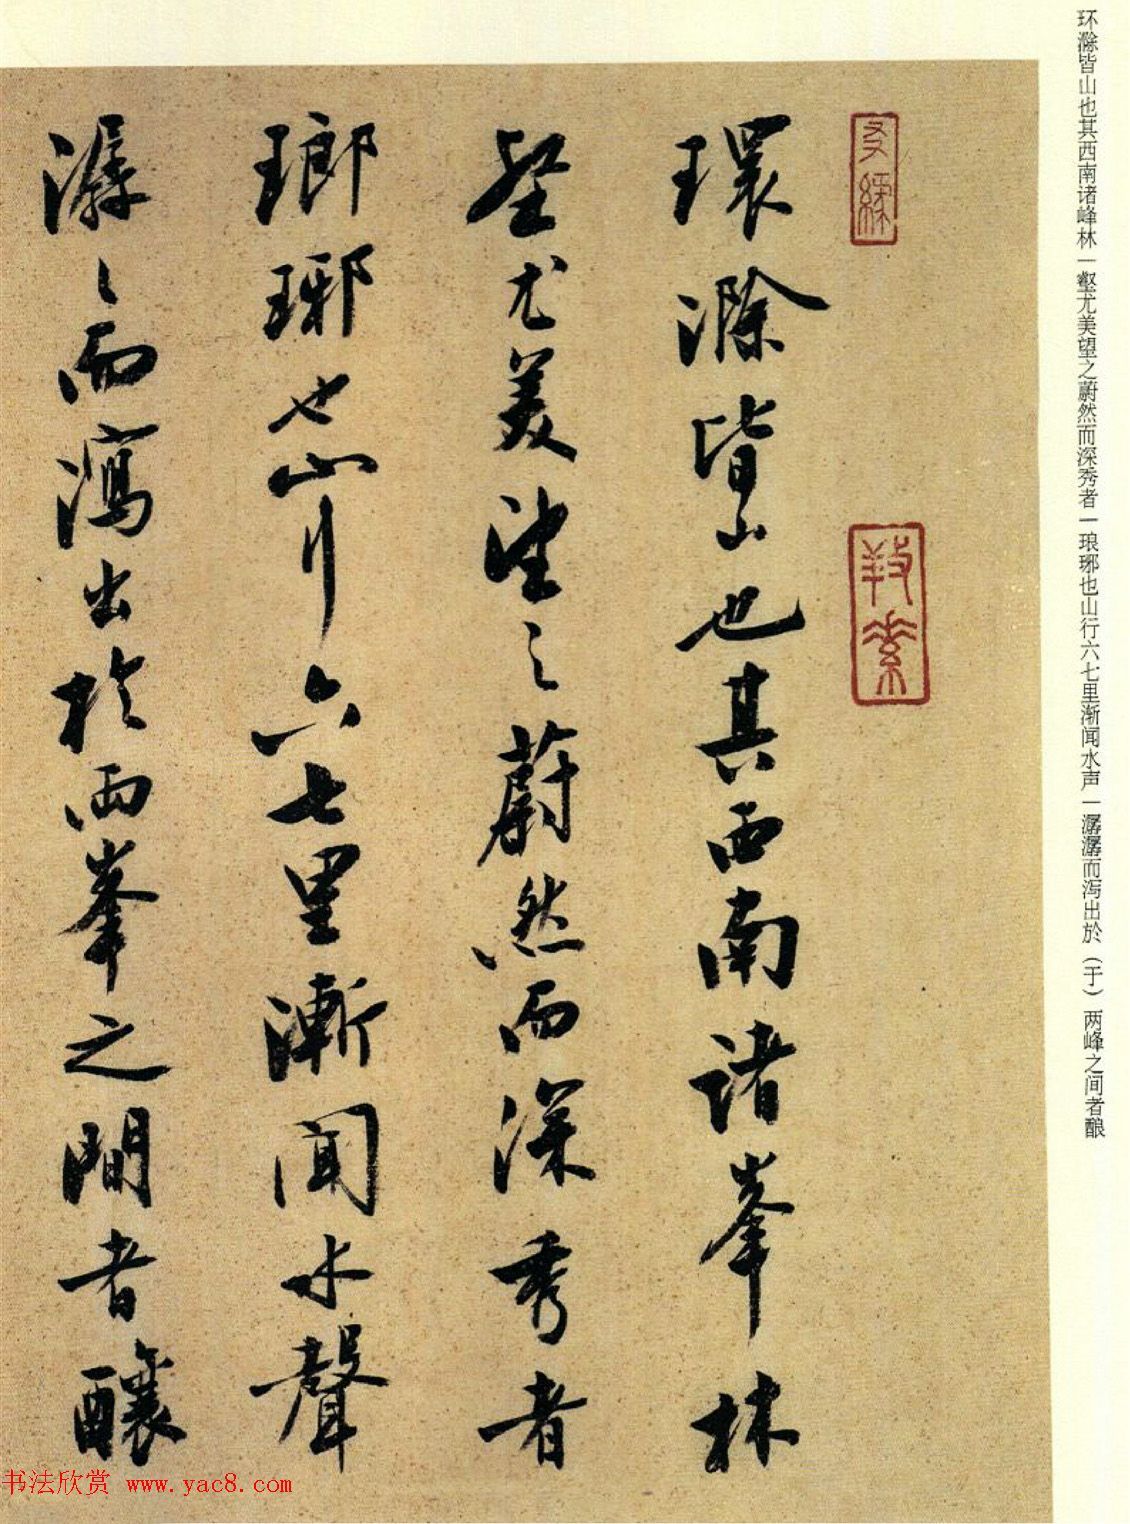 环滁皆山也其西南诸峰林一壑尤美望之蔚然而深秀者一琅琊也山行六七里渐闻水声一潺潺而泻出於（于）两峰之间者酿
環滁皆山也其西南諸峯林
壑尤美望之蔚然而深秀者
瑯琊也山行六七里漸聞水聲
潺〻而瀉出於兩峯之間者釀
书法欣赏 www.yac8.com